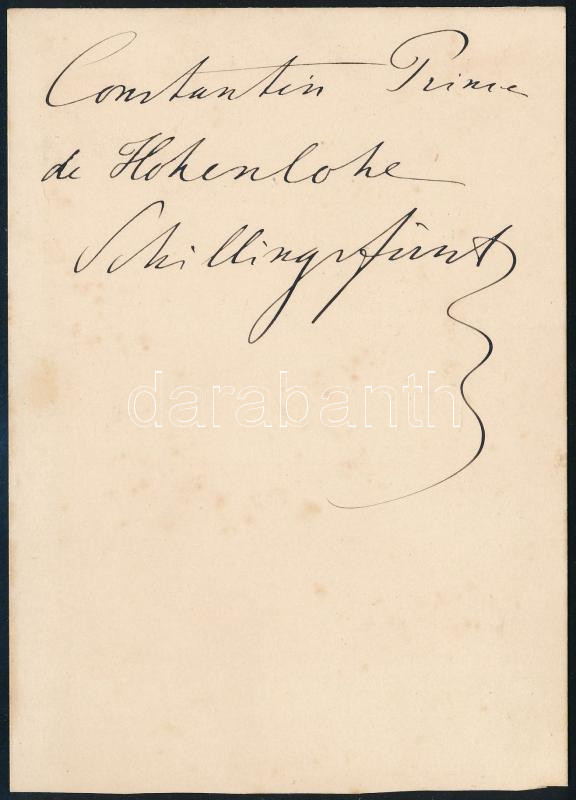 Constantin Prince
de Hohenlohe
Schillingsfürst
darabanth